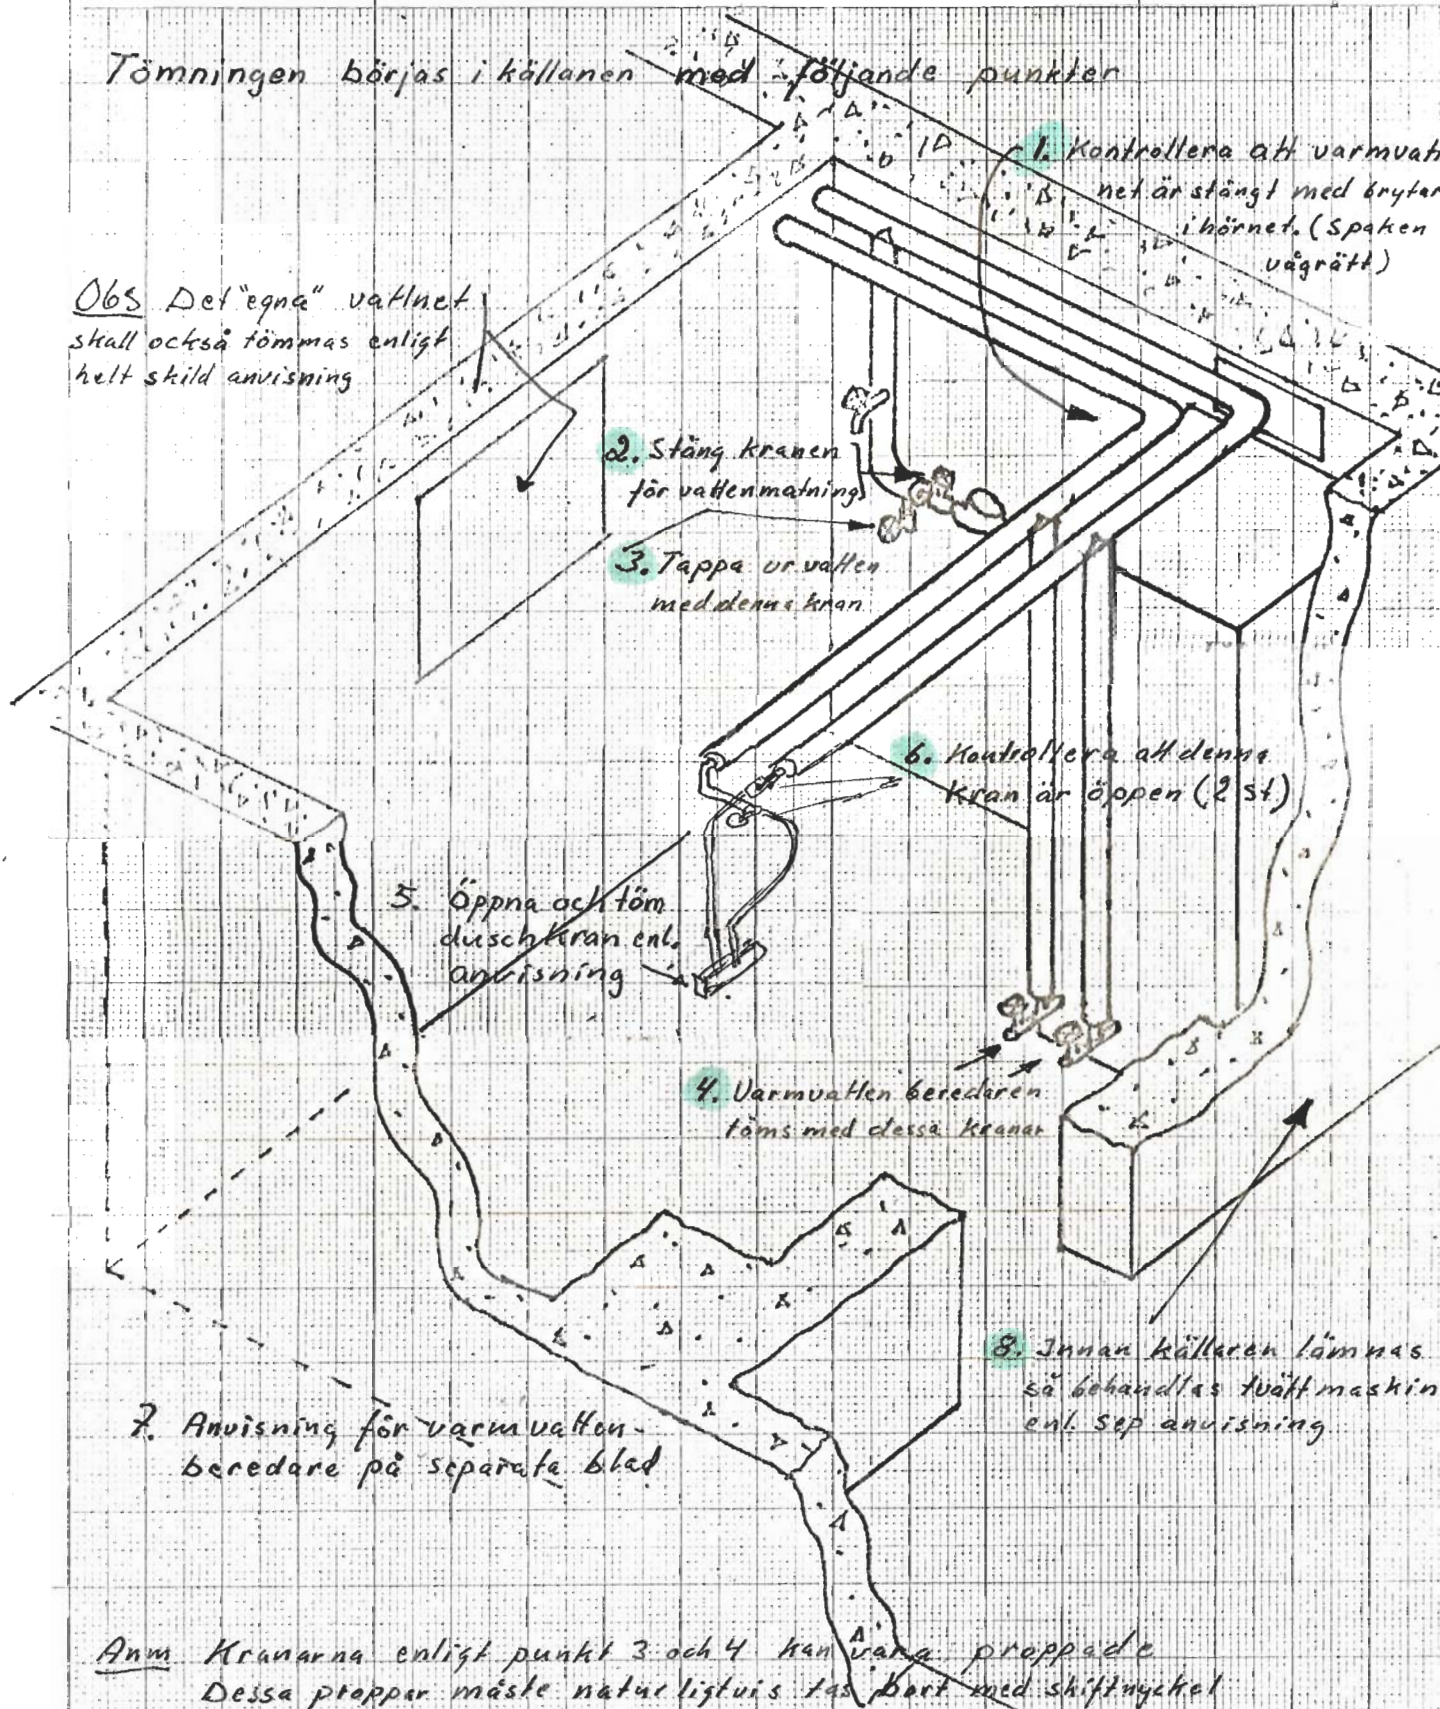 Tömningen börjas i källaren med följande punkter
1. Kontrollera att varmvatt
net är stängt med brytar
i hörnet. (Spaken
vågrätt)
Obs Det "egna" vattnet
skall också tömmas enligt
helt skild anvisning
2. Stäng kranen
för vattenmatning
3. Tappa ur vatten
med denna kran
6. Kontrollera att denna
kran är öppen (2 st)
5. Öppna och töm
duschkran enl.
anvisning
4. Varmvatten beredaren
töms med dessa kranar
8. Innan källaren lämnas
så behandlas tvättmaskin
enl. sep anvisning
7. Anvisning för varmvatten-
beredare på separata blad
Anm Kranarna enligt punkt 3 och 4 kan vara proppade
Dessa proppar måste naturligtvis tas bort med skiftnyckel